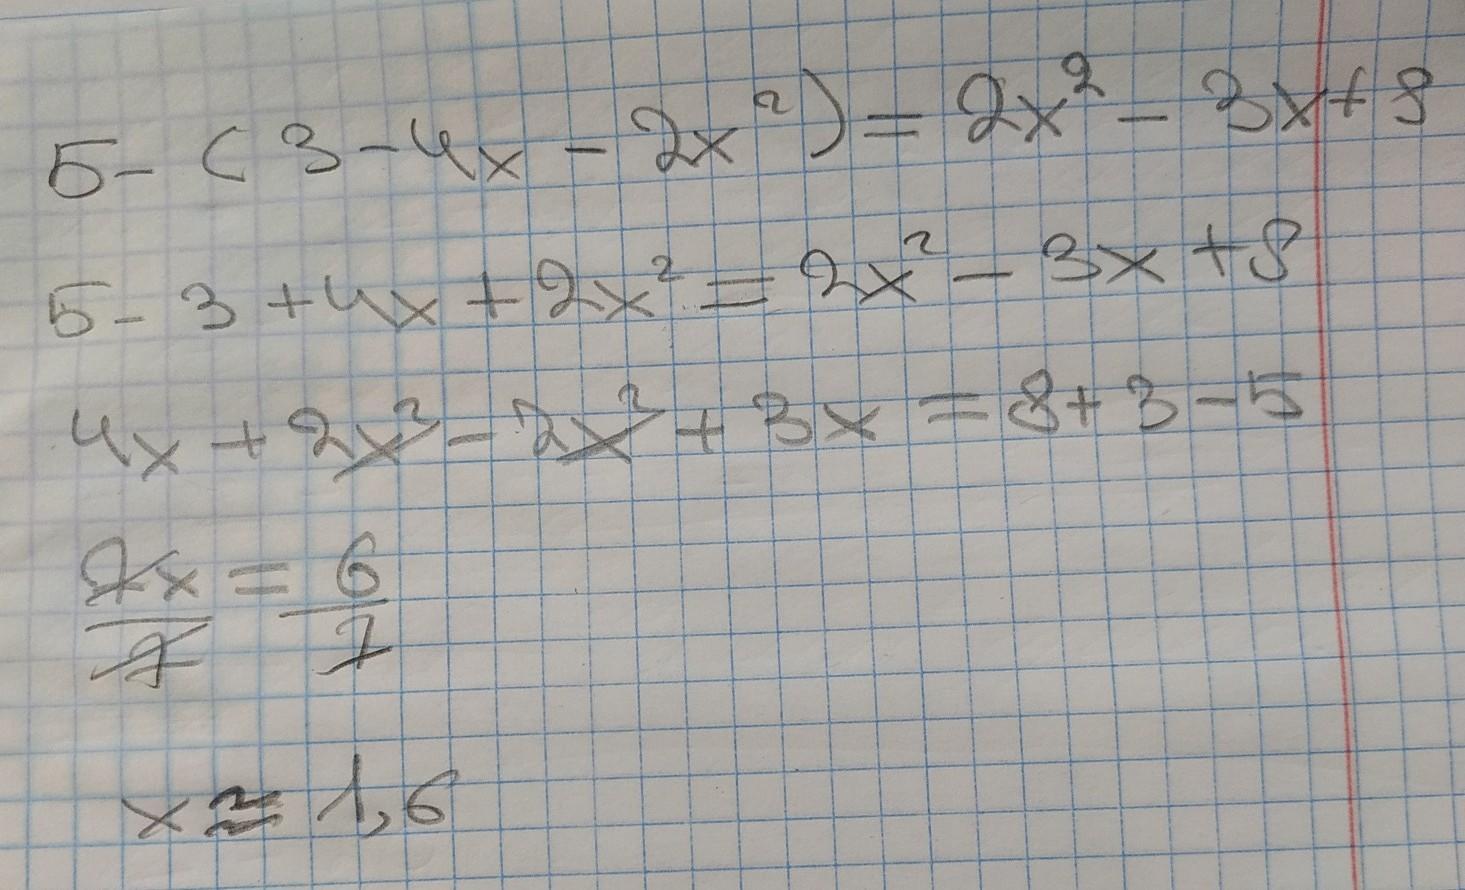 5 - (3 - 4x - 2x²) = 2x² - 3x + 8
5 - 3 + 4x + 2x² = 2x² - 3x + 8
4x + 2x² - 2x² + 3x = 8 + 3 - 5
7x/7 = 6/7
x ≈ 1,6